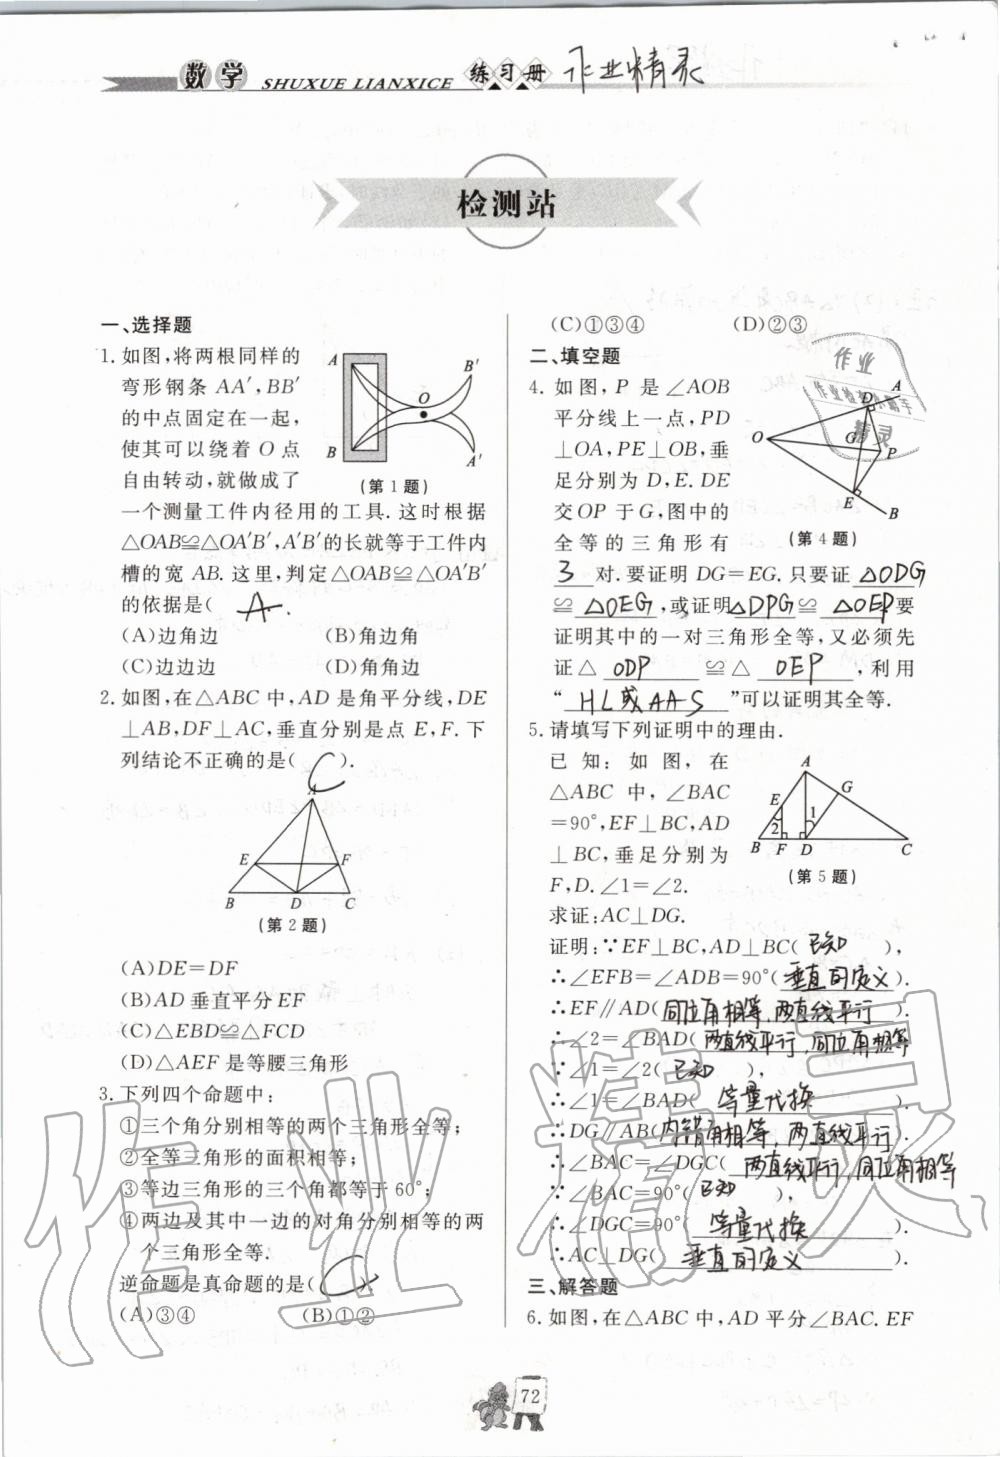 数学 SHUXUE LIANXICE 练习册 作业精灵
检测站
一、选择题
1. 如图,将两根同样的
弯形钢条 AA′,BB′
的中点固定在一起,
使其可以绕着 O 点
自由转动,就做成了
A
B
O
B′
A′
(第 1 题)
一个测量工件内径用的工具. 这时根据
△OAB≌△OA′B′,A′B′的长就等于工件内
槽的宽 AB. 这里,判定△OAB≌△OA′B′
的依据是( A ).
(A)边角边 (B)角边角
(C)边边边 (D)角角边
2. 如图,在△ABC 中,AD 是角平分线,DE
⊥AB,DF⊥AC,垂直分别是点 E,F. 下
列结论不正确的是( C ).
A
E F
B D C
(第 2 题)
(A)DE=DF
(B)AD 垂直平分 EF
(C)△EBD≌△FCD
(D)△AEF 是等腰三角形
3. 下列四个命题中:
①三个角分别相等的两个三角形全等;
②全等三角形的面积相等;
③等边三角形的三个角都等于 60°;
④两边及其中一边的对角分别相等的两
个三角形全等.
逆命题是真命题的是( C ).
(A)③④ (B)①②
(C)①③④ (D)②③
二、填空题
4. 如图,P 是∠AOB
平分线上一点,PD
⊥OA,PE⊥OB,垂
足分别为 D,E. DE
交 OP 于 G,图中的
全等的三角形有
A
D
O
G
P
E
B
(第 4 题)
3 对. 要证明 DG=EG. 只要证 △ODG
≌ △OEG ,或证明 △DPG ≌ △OEP 要
证明其中的一对三角形全等,又必须先
证△ ODP ≌△ OEP ,利用
“ HL或AAS ”可以证明其全等.
5. 请填写下列证明中的理由.
已知:如图,在
△ABC 中,∠BAC
=90°,EF⊥BC,AD
⊥BC,垂足分别为
F,D.∠1=∠2.
A
G
E
1
2
B F D C
(第 5 题)
求证:AC⊥DG.
证明:∵EF⊥BC,AD⊥BC( 已知 ),
∴∠EFB=∠ADB=90°( 垂直的定义 ).
∴EF∥AD( 同位角相等,两直线平行 ).
∴∠2=∠BAD( 两直线平行,同位角相等
∵∠1=∠2( 已知 ),
∴∠1=∠BAD( 等量代换 ).
∴DG∥AB( 内错角相等,两直线平行 ).
∴∠BAC=∠DGC( 两直线平行,同位角相等
∵∠BAC=90°( 已知 ),
∴∠DGC=90°( 等量代换 ).
∴AC⊥DG( 垂直的定义 ).
三、解答题
6. 如图,在△ABC 中,AD 平分∠BAC. EF
72
作业精灵
作业
精灵